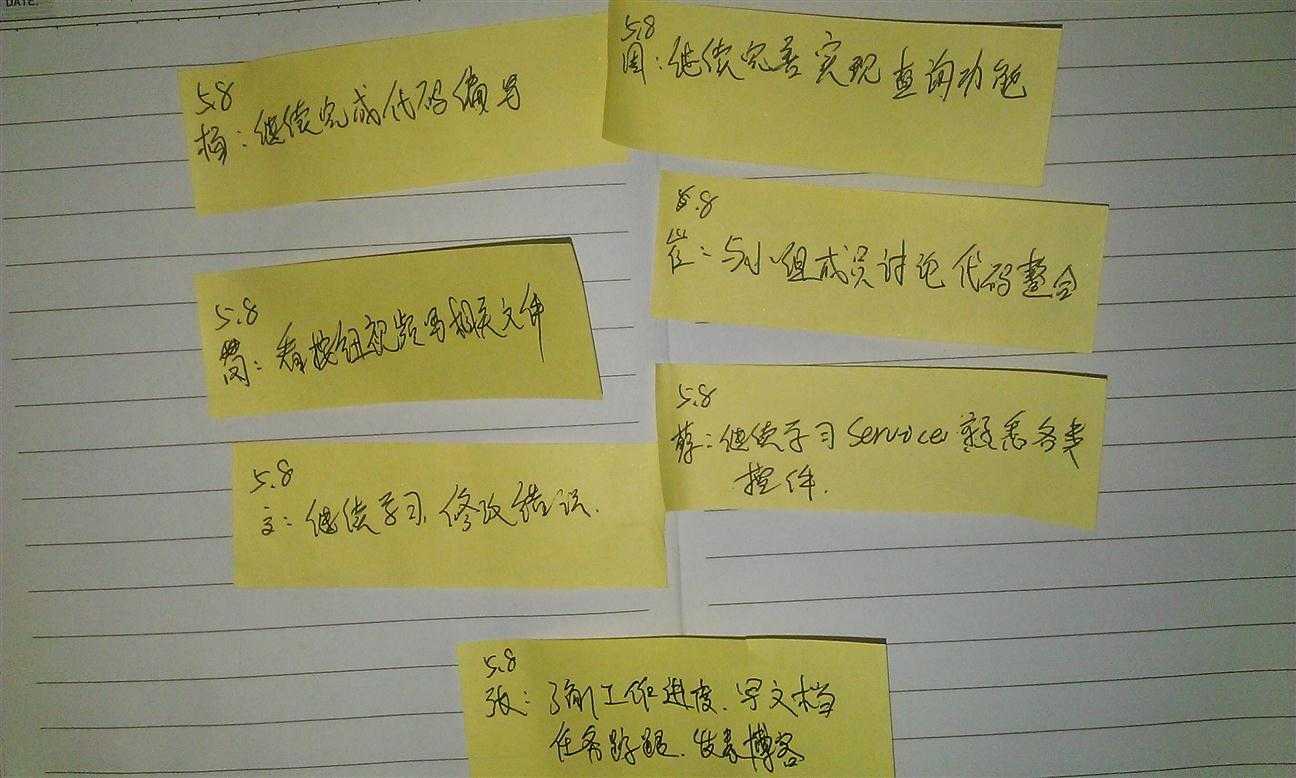 DATE.
5.8
杨：继续完成代码编写
5.8
周：继续完善实现查询功能
5.8
崔：与小组成员讨论代码整合
5.8
简：看按钮视频写相关文件
5.8
薛：继续学习Service熟悉各类
控件.
5.8
文：继续学习，修改错误.
5.8
张：了解工作进度、写文档
任务跟踪、发表博客